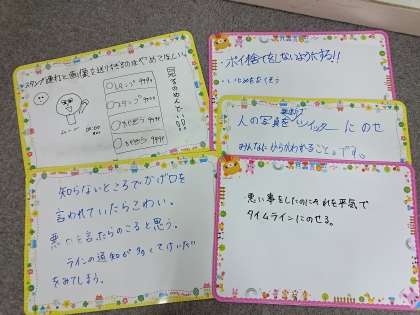 スタンプ連打と画像を送りすぎるのはやめてほしい。
スタンプ 999
見るのめんどい!!
ポイ捨てをしないようにする!!
いじめをなくそう
人の写真をツイッターにのせ
みんなにからかわれることです。
知らないところでかげ口を
言われていたらこわい。
悪口を言ったらのこると思う。
ラインの通知が多くてけいたい
をみてしまう。
悪い事をしたのにそれを平気で
タイムラインにのせる。